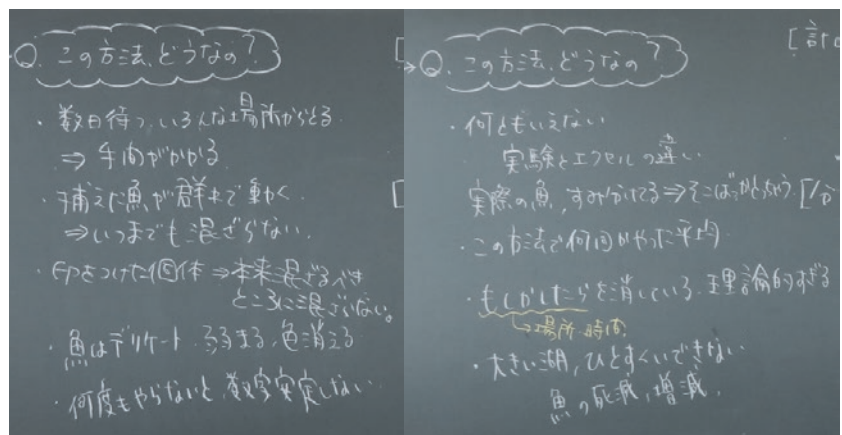 Q. この方法、どうなの?
・数日待つ、いろんな場所からとる
⇒ 手間がかかる
・捕えた魚が群れで動く
⇒いつまでも混ざらない。
・印をつけた個体 ⇒本来混ざるべき
ところに混ざらない。
・魚はデリケート 弱まる、色消える
・何度もやらないと、数字安定しない
→Q. この方法、どうなの?
・何ともいえない
実験とエクセルの違い
実際の魚、すみ分けてる⇒そこばっかとっちゃう
・この方法で何回かやった平均
・もしかしたらを消している。理論的すぎる
→場所・時間
・大きい湖、ひとすくいできない
魚の死滅、増減、